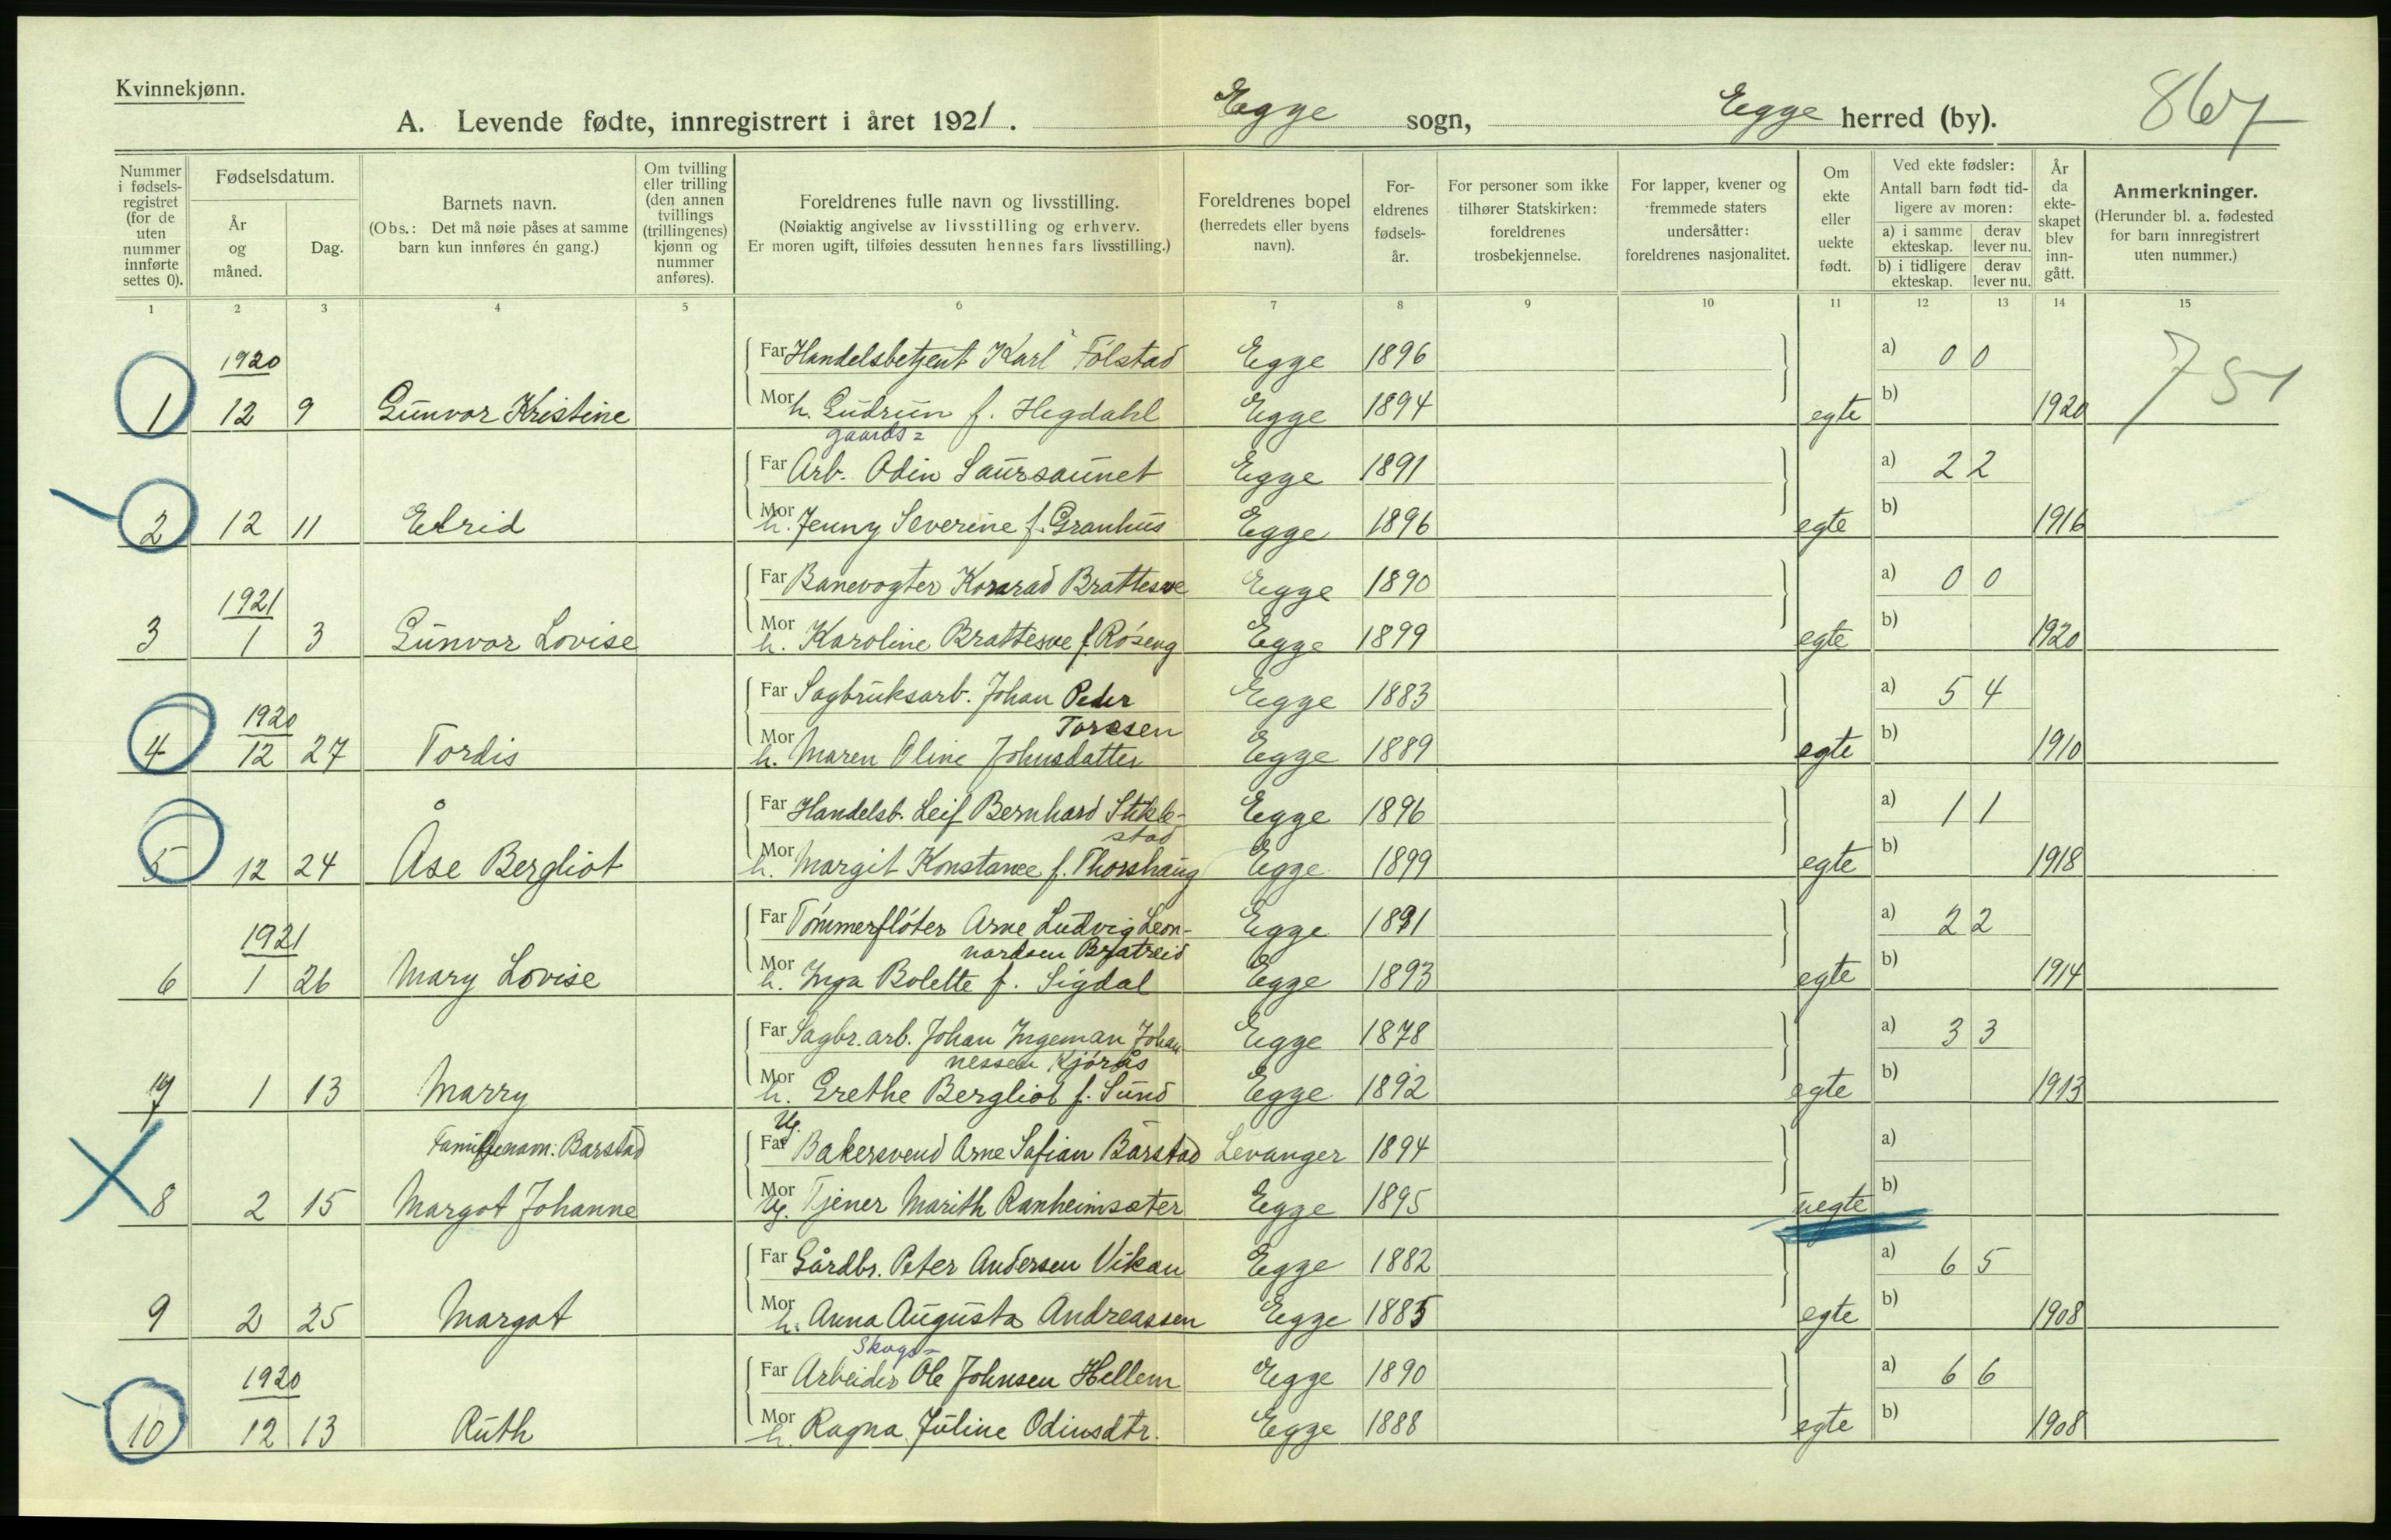 Kvinnekjønn.
A. Levende fødte, innregistrert i året 1921. Egge sogn, Egge herred (by). 867
Nummer i fødsels-registret (for de uten nummer innførte settes 0).
Fødselsdatum.
År og måned.
Dag.
Barnets navn.
(Obs.: Det må nøie påses at samme barn kun innføres én gang.)
Om tvilling eller trilling (den annen tvillings (trillingenes) kjønn og nummer anføres).
Foreldrenes fulle navn og livsstilling.
(Nøiaktig angivelse av livsstilling og erhverv.
Er moren ugift, tilføies dessuten hennes fars livsstilling.)
Foreldrenes bopel
(herredets eller byens navn).
For-eldrenes fødsels-år.
For personer som ikke tilhører Statskirken: foreldrenes trosbekjennelse.
For lapper, kvener og fremmede staters undersåtter: foreldrenes nasjonalitet.
Om ekte eller uekte født.
Ved ekte fødsler:
Antall barn født tid-ligere av moren:
a) i samme ekteskap. derav lever nu.
b) i tidligere ekteskap. derav lever nu.
År da ekte-skapet blev inn-gått.
Anmerkninger.
(Herunder bl. a. fødested for barn innregistrert uten nummer.)
1 2 3 4 5 6 7 8 9 10 11 12 13 14 15
1920 Far Handelsbetjent Karl Følstad Egge 1896 a) 0 0 751
1 12 9 Gunvor Kristine Mor h. Gudrun f. Hegdahl Egge 1894 egte b) 1920
gaards=
Far Arb. Odin Saursaunet Egge 1891 a) 2 2
2 12 11 Eldrid Mor h. Jenny Severine f. Granhus Egge 1896 egte b) 1916
Far Banevogter Konrad Brattesve Egge 1890 a) 0 0
1921
3 1 3 Gunvor Lovise Mor h. Karoline Brattesve f. Røseng Egge 1899 egte b) 1920
Far Sagbruksarb. Johan Peder Egge 1883 a) 5 4
1920 Toresen
4 12 27 Tordis Mor h. Maren Oline Johnsdatter Egge 1889 egte b) 1910
Far Handelsb. Leif Bernhard Stikle- Egge 1896 a) 1 1
stad
5 12 24 Åse Bergliot Mor h. Margit Konstance f. Thorshaug Egge 1899 egte b) 1918
Far Tømmerfløter Arne Ludvig Leon- Egge 1891 a) 2 2
1921 nardsen Bratreid
6 1 26 Mary Lovise Mor h. Inga Bolette f. Sigdal Egge 1893 egte b) 1914
Far Sagbr. arb. Johan Ingeman Johan Egge 1878 a) 3 3
nessen Kjørås
7 1 13 Marry Mor h. Grethe Bergliot f. Sund Egge 1892 egte b) 1913
Ug.
Familjenavn: Barstad Far Bakersvend Arne Safian Barstad Levanger 1894 a)
8 2 15 Margot Johanne Mor Ug. Tjener Marith Ranheimsæter Egge 1895 uegte b)
Far Gårdbr. Peter Andersen Vikan Egge 1882 a) 6 5
9 2 25 Margot Mor h. Anna Augusta Andreassen Egge 1885 egte b) 1908
Skogs=
1920 Far Arbeider Ole Johnsen Hellem Egge 1890 a) 6 6
10 12 13 Ruth Mor h. Ragna Juline Odinsdtr. Egge 1888 egte b) 1908